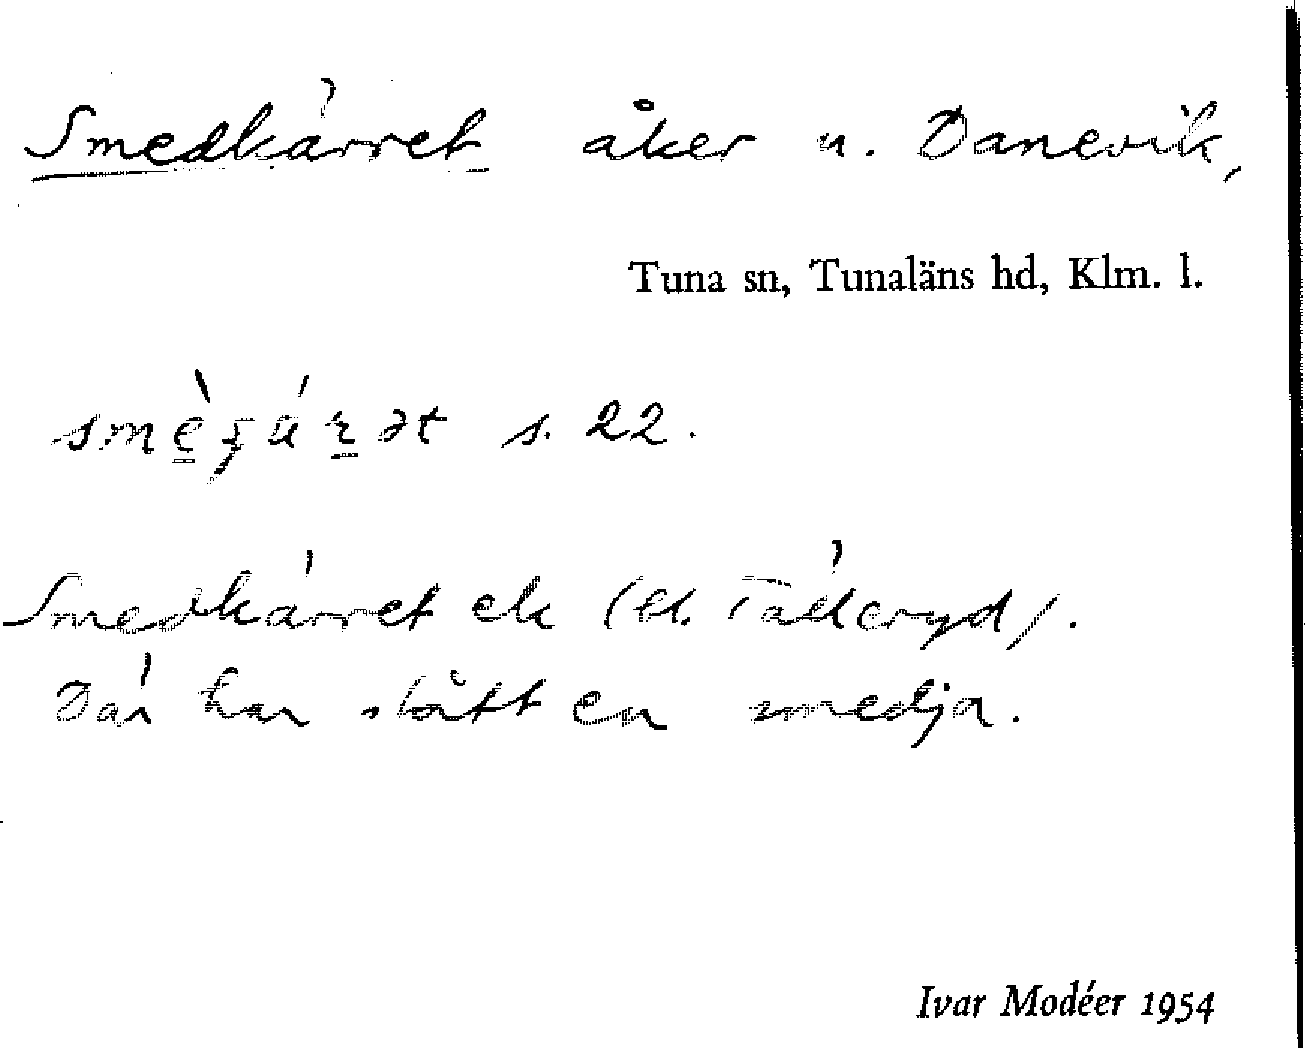 Smedkärret åker u. Danevik,
Tuna sn, Tunaläns hd, Klm. l.
s. 22.
Smedkärret ek (bl. Tälleryd).
Där har stått en smedja.
Ivar Modéer 1954